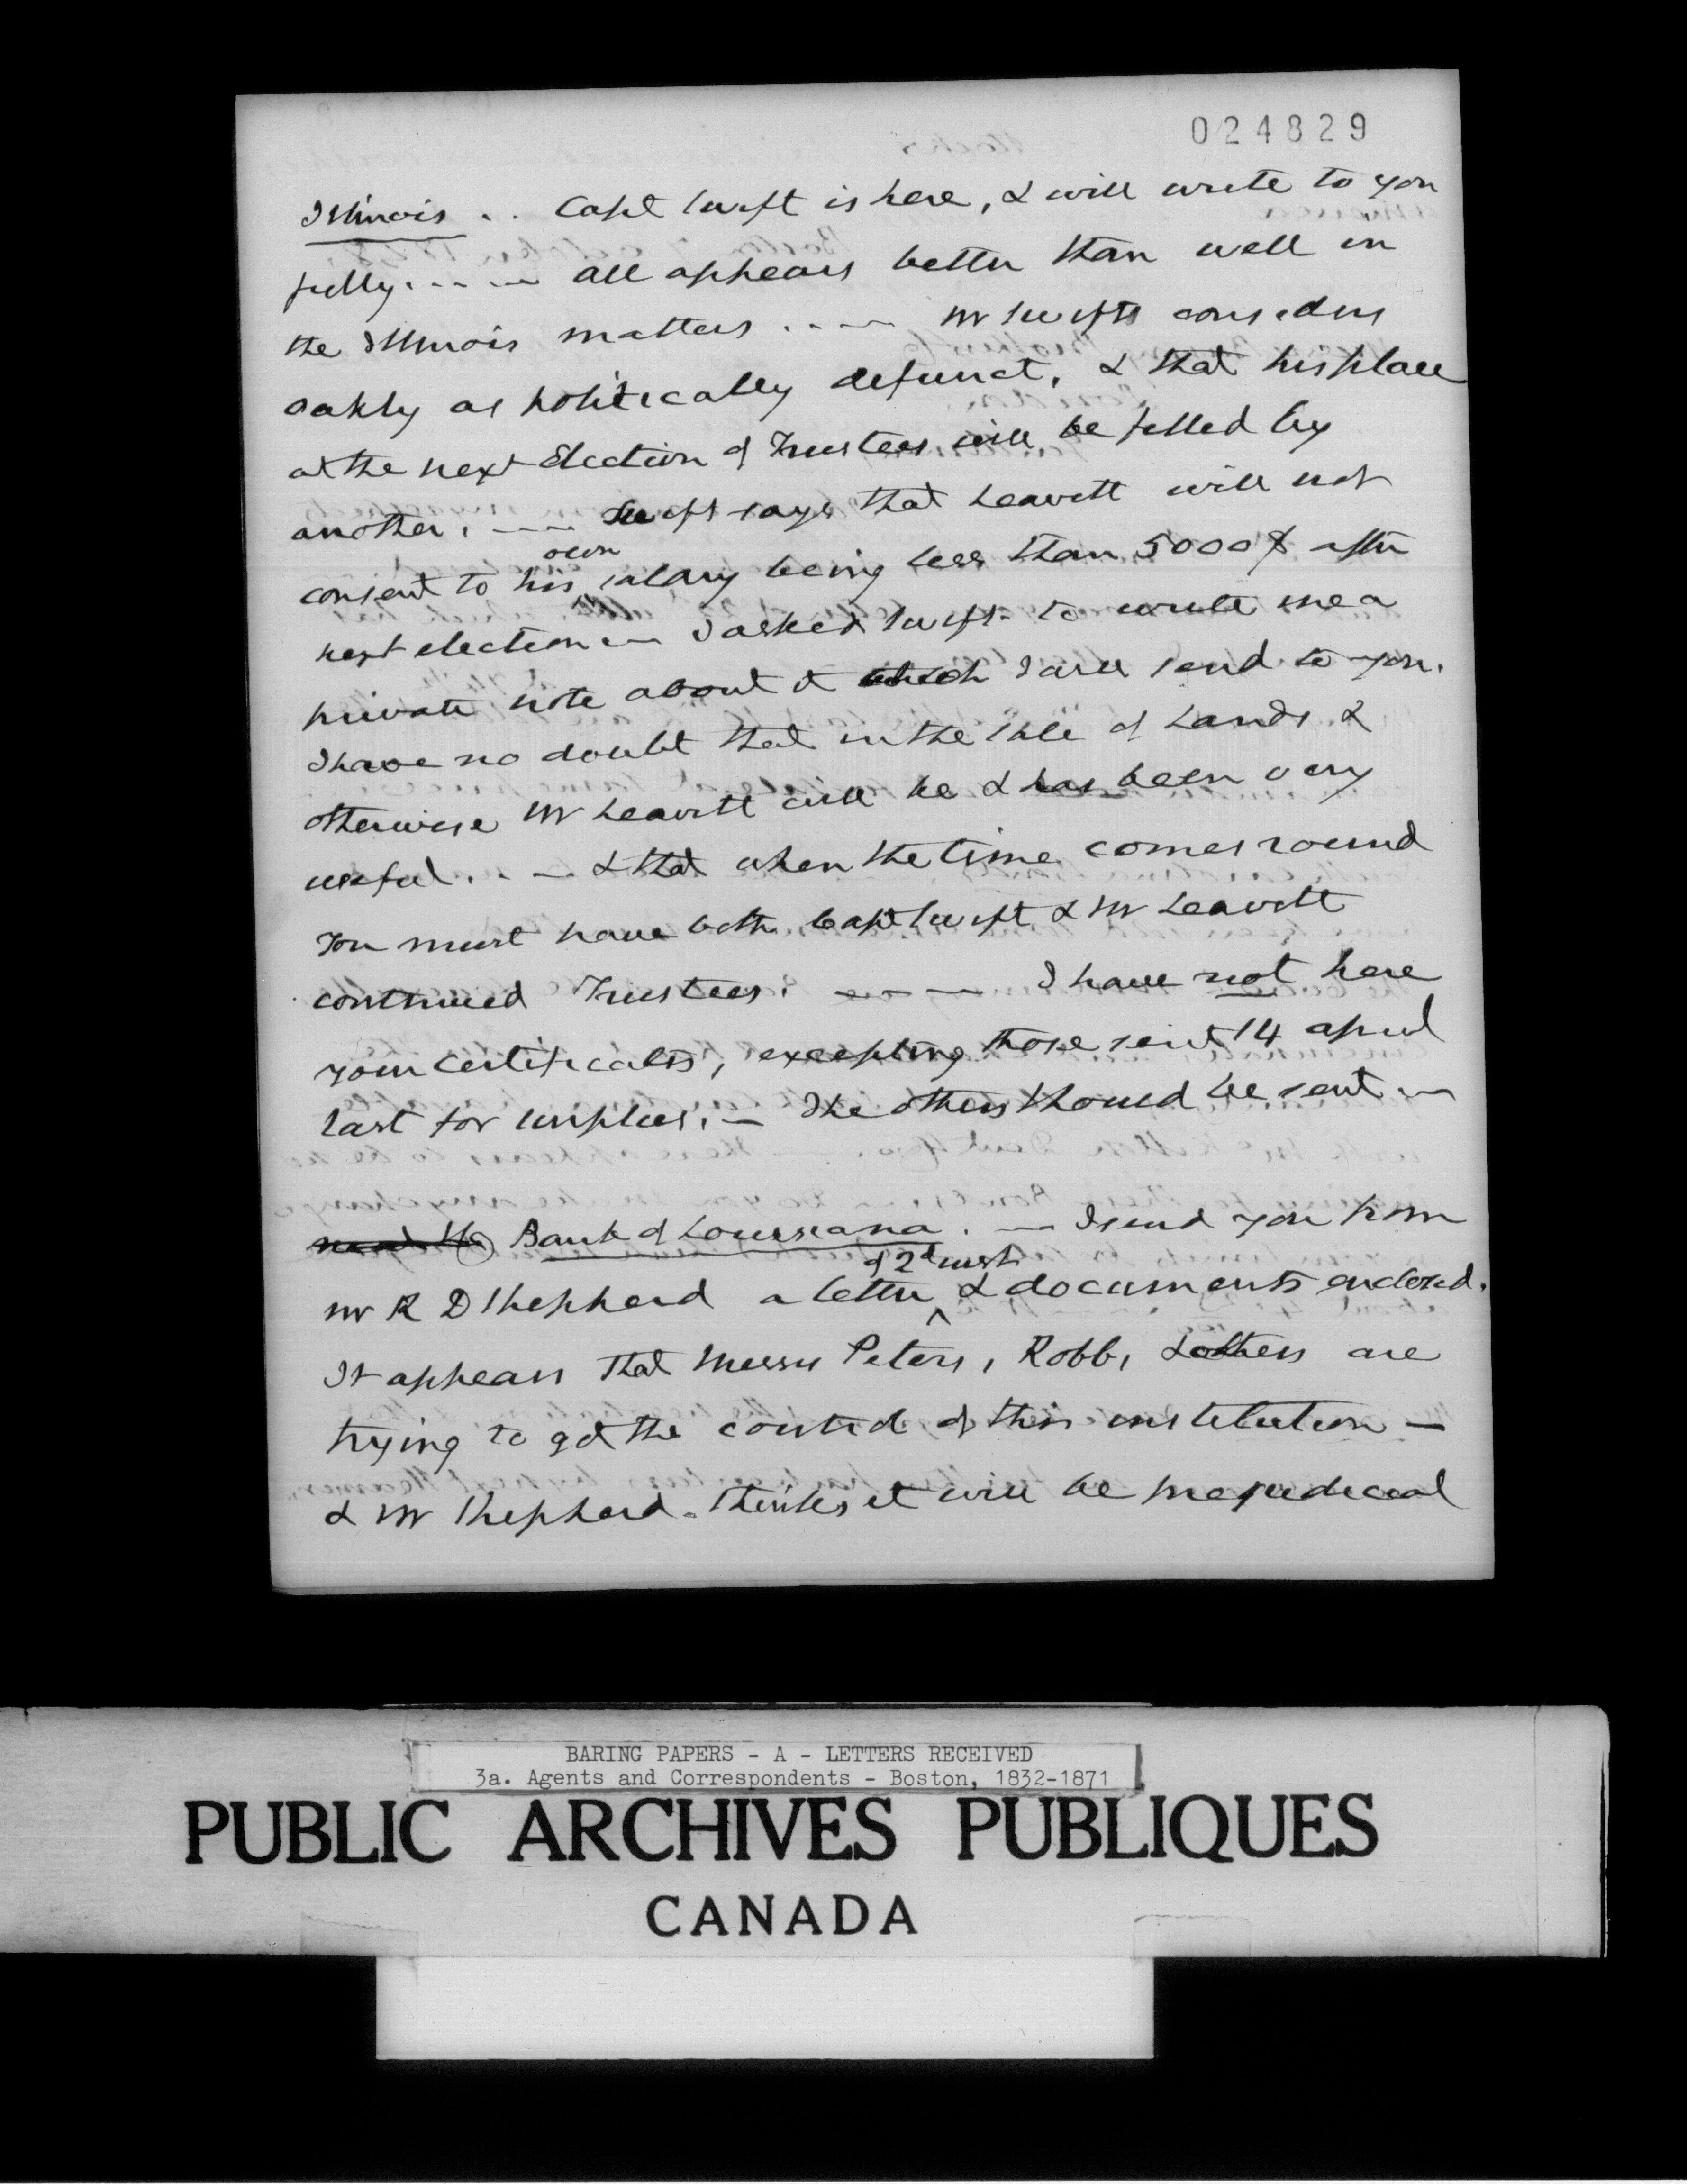 024829
Illinois .. Capt Swift is here, & will write to you
fully. - - — all appears better than well in
the Illinois matters . - — Mr Swift considers
Oakly as politically defunct, & that his place
at the next Election of Trustees will be filled by
another. — Swift says that Leavitt will not
own
consent to his salary being less than 5000$ after
next election — I asked Swift to write me a
private note about it which I will send to you.
I have no doubt that in the Sale of Lands &
otherwise Mr Leavitt will be & has been very
useful. - — & that when the time comes round
You must have both Capt Swift & Mr Leavitt
continued Trustees. — - — I have not here
your certificates, excepting those sent 14 april
last for surplus. — The others should be sent —
Bank of Louisiana. — I send you from
of 2d inst
Mr R D Shepherd a letter ^ & documents enclosed.
It appears that Messrs Peters, Robb, & others are
trying to get the control of this institution —
& Mr Shepherd thinks it will be prejudicial
BARING PAPERS - A - LETTERS RECEIVED
3a. Agents and Correspondents - Boston, 1832-1871
PUBLIC ARCHIVES PUBLIQUES
CANADA